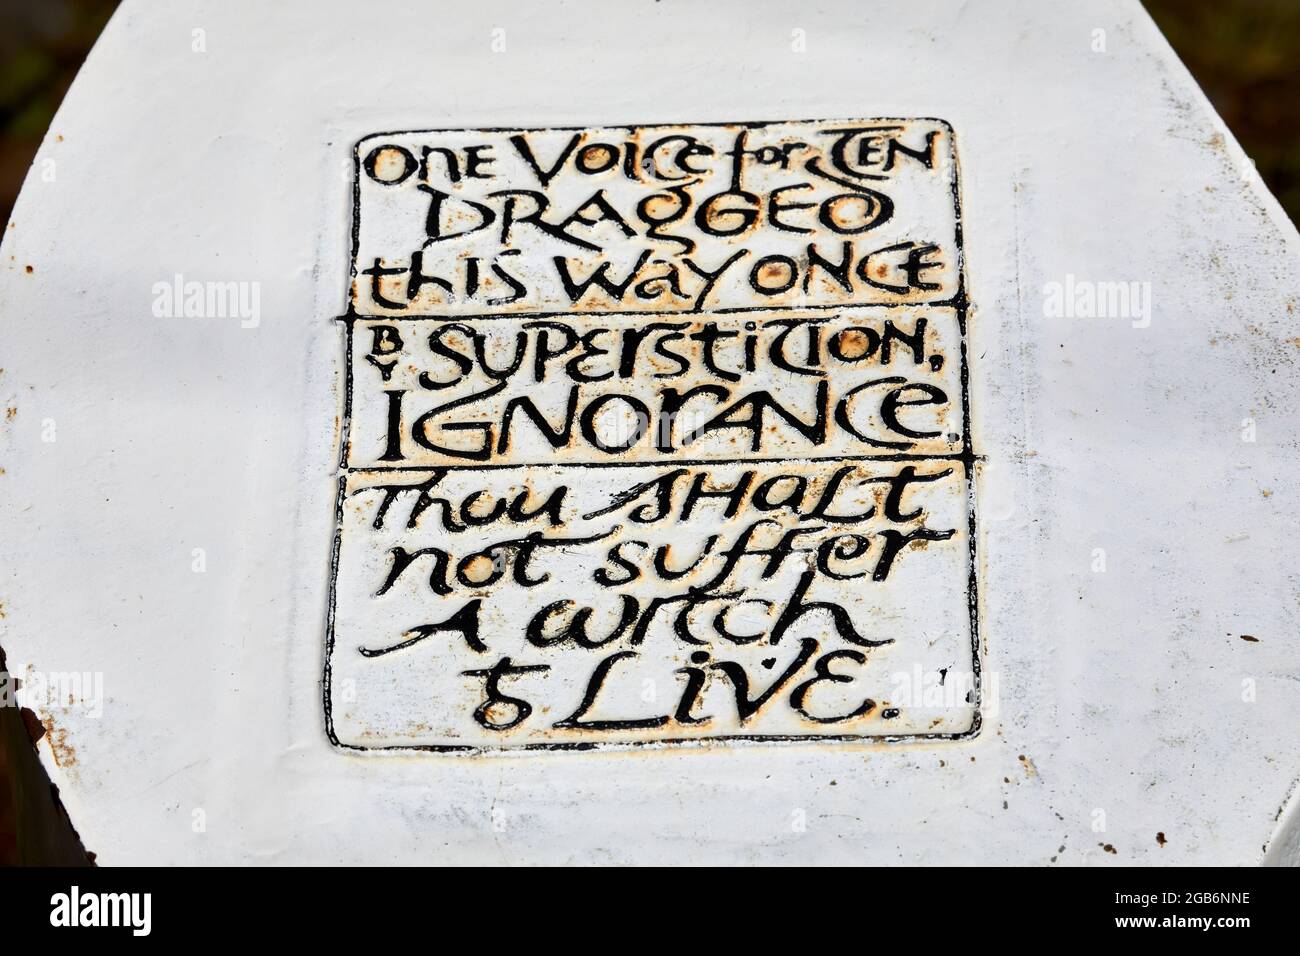 ONE VOICE for TEN
DRAgGED
this WAY ONCE
BY SUPERSTITION,
IGNORANCE.
Thou SHALT
not suffer
A witch
to LiVE.
alamy
Image ID: 2GB6NNE
www.alamy.com